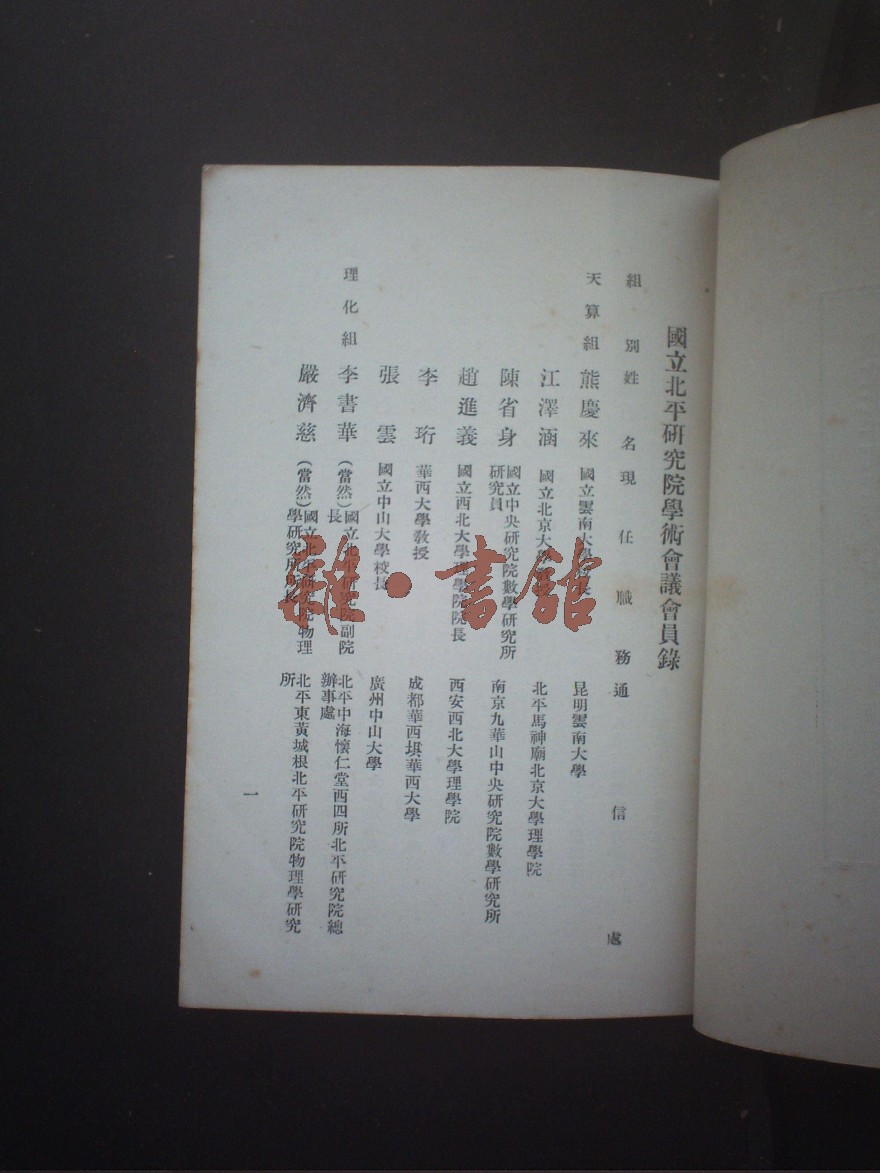 國立北平研究院學術會議會員錄
組別 姓名 現任職務 通信處
天算組 熊慶來 國立雲南大學校長 昆明雲南大學
江澤涵 國立北京大學教授 北平馬神廟北京大學理學院
陳省身 國立中央研究院數學研究所研究員 南京九華山中央研究院數學研究所
趙進義 國立西北大學理學院院長 西安西北大學理學院
李珩 華西大學教授 成都華西垻華西大學
張雲 國立中山大學校長 廣州中山大學
理化組 李書華 (當然)國立北平研究院副院長 北平中海懷仁堂西四所北平研究院總辦事處
嚴濟慈 (當然)國立北平研究院物理學研究所所長 北平東黃城根北平研究院物理學研究所
一
雜·書館